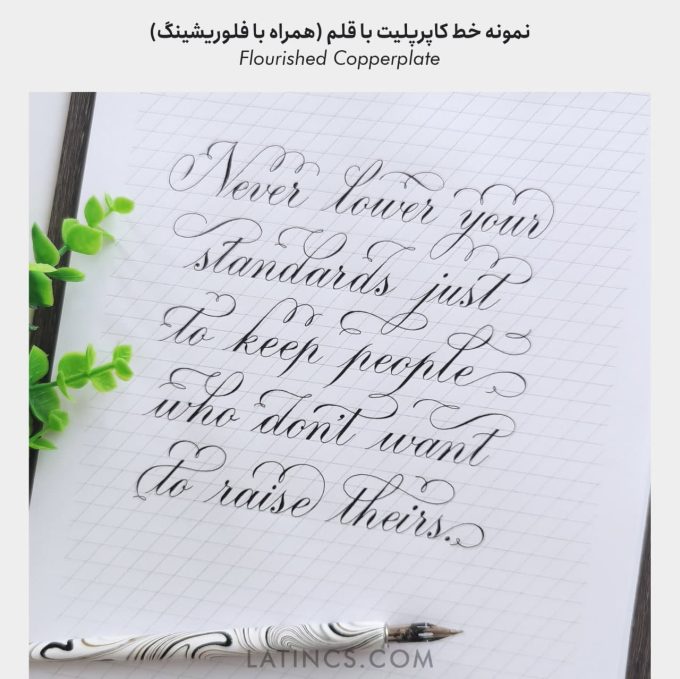 نمونه خط کاپرپلیت با قلم (همراه با فلوریشینگ)
Flourished Copperplate
Never lower your
standards just
to keep people
who don't want
to raise theirs.
LATINCS.COM